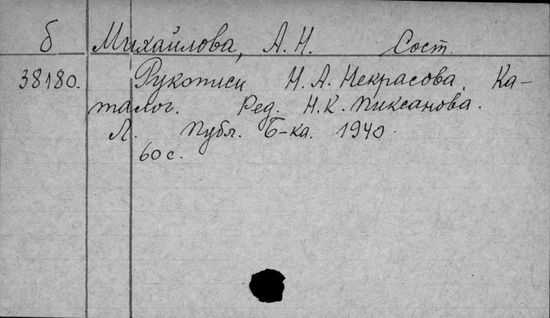 б Михайлова, А. Н. Сост.
38180. Рукописи Н. А. Некрасова. Ка-
талог. Ред. Н. К. Пиксанова.
Л. Публ. Б-ка. 1940.
60 с.